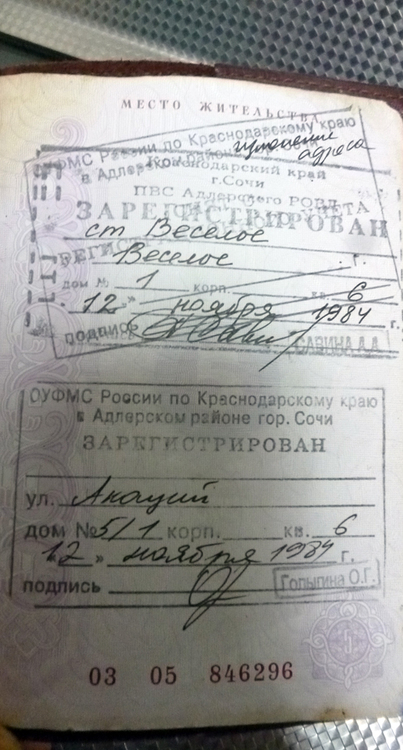 МЕСТО ЖИТЕЛЬСТВА
ОУФМС России по Краснодарскому краю
в Адлерском районе
изменение
адреса
Краснодарский край
г.Сочи
ПВС Адлерского РОВД
ЗАРЕГИСТРИРОВАН
ст Веселое
Веселое г.
дом № 1 корп. кв. 6
"12" ноября 1984 г.
подпись САВИНА А.А.
ОУФМС России по Краснодарскому краю
в Адлерском районе гор. Сочи
ЗАРЕГИСТРИРОВАН
ул. Акаций
дом № 5/1 корп. кв. 6
12 » ноября 1984 г.
подпись Голыгина О.Г.
03 05 846296